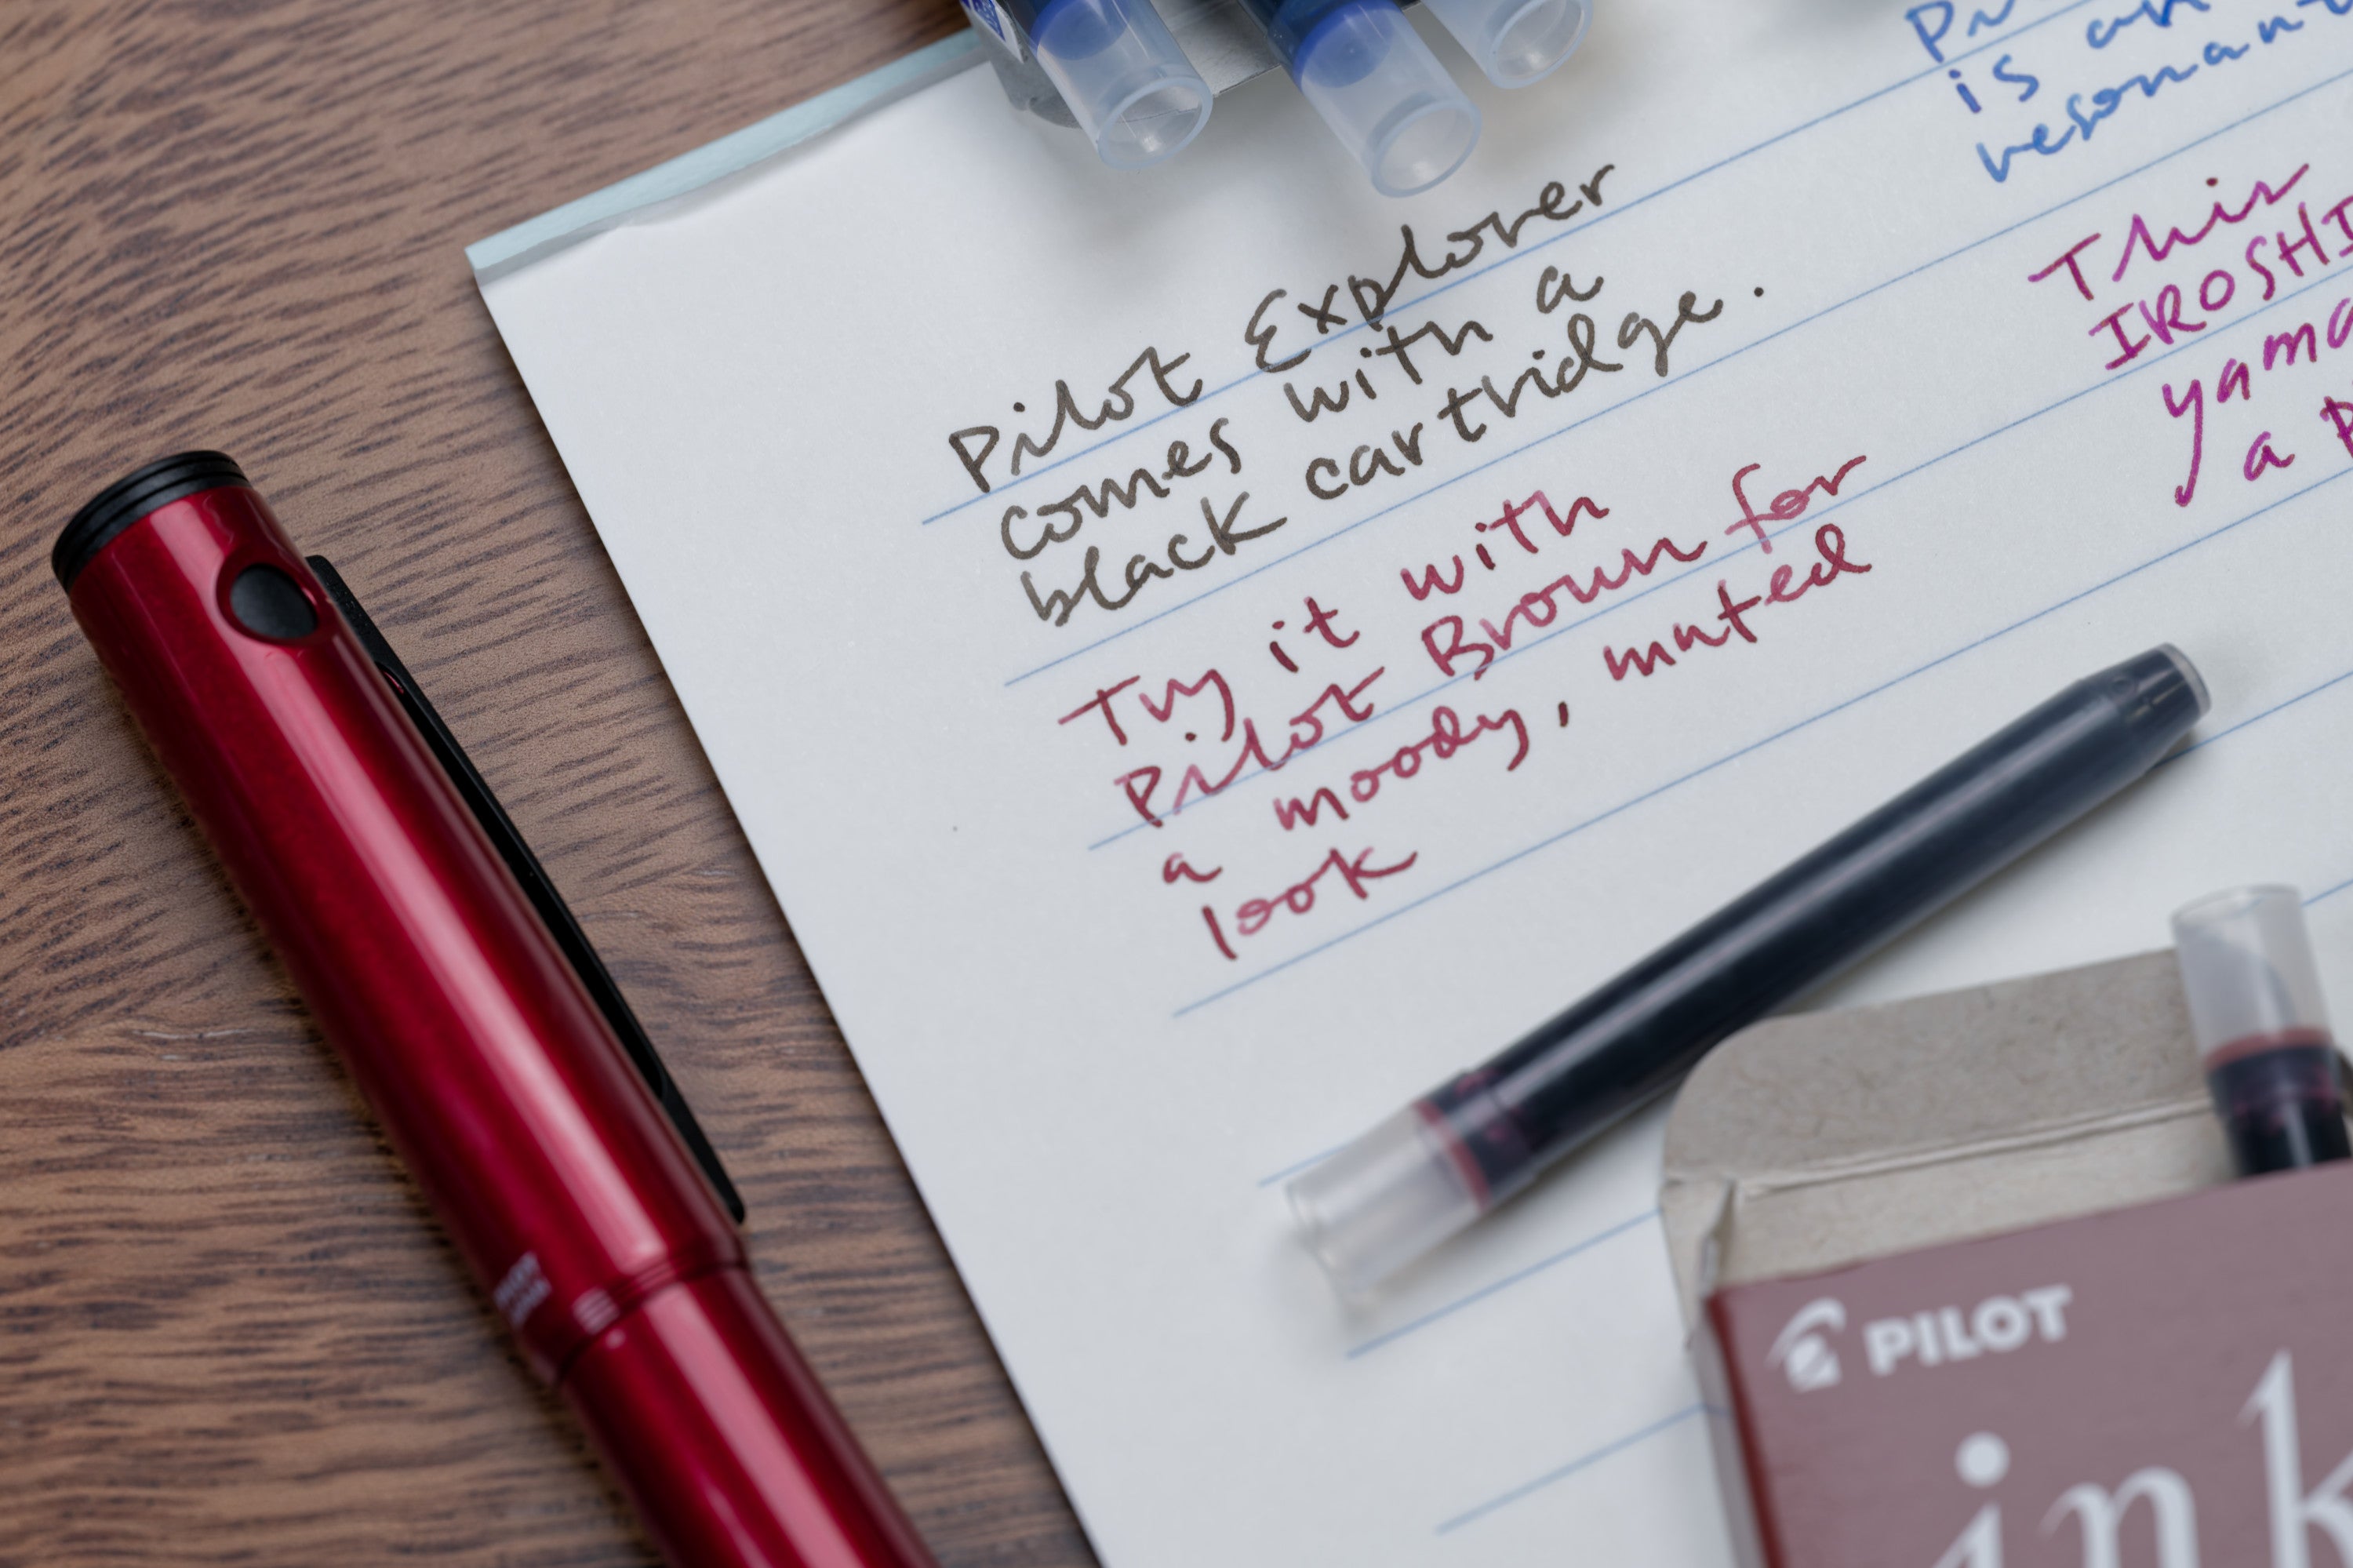 Pilot Explorer
comes with a
black cartridge.
Try it with
Pilot Brown for
a moody, muted
look
is an
resonant
This
IROSHI
yama
a
PILOT
ink